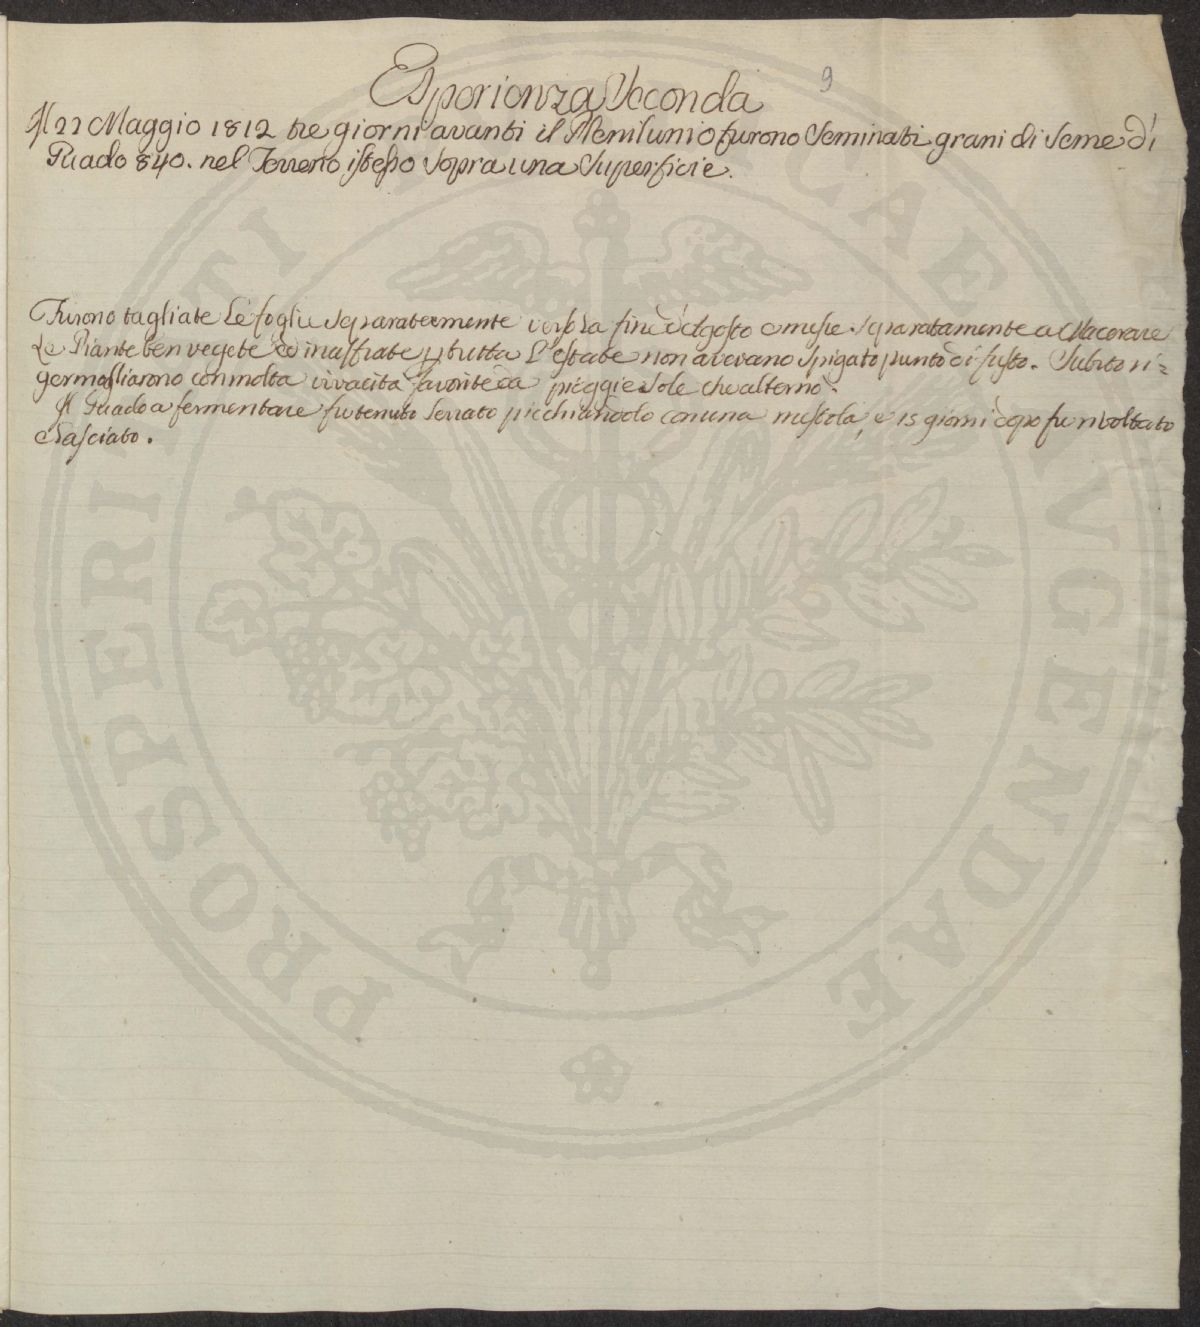 9
Esperienza Seconda
Il 22 Maggio 1812 tre giorni avanti il Plenilunio furono Seminati grani di Seme di
Guado 840. nel Terreno istesso Sopra una Superficie.
Furono tagliate Le foglie separatamente verso la fine d'Agosto e messe separatamente a Macerare
Le Piante ben vegete ed inaffiate p tutta L'estate non avevano Spigato punto di fusto. Subito ri=
germogliarono con molta vivacità favorite da pioggie e Sole che alternò.
Il Guado a fermentare fu tenuto Serrato picchiandolo con una mestola, e 15 giorni dopo fu rivoltato
e Lasciato.
PROSPERITATI PUBLICAE AUGENDAE